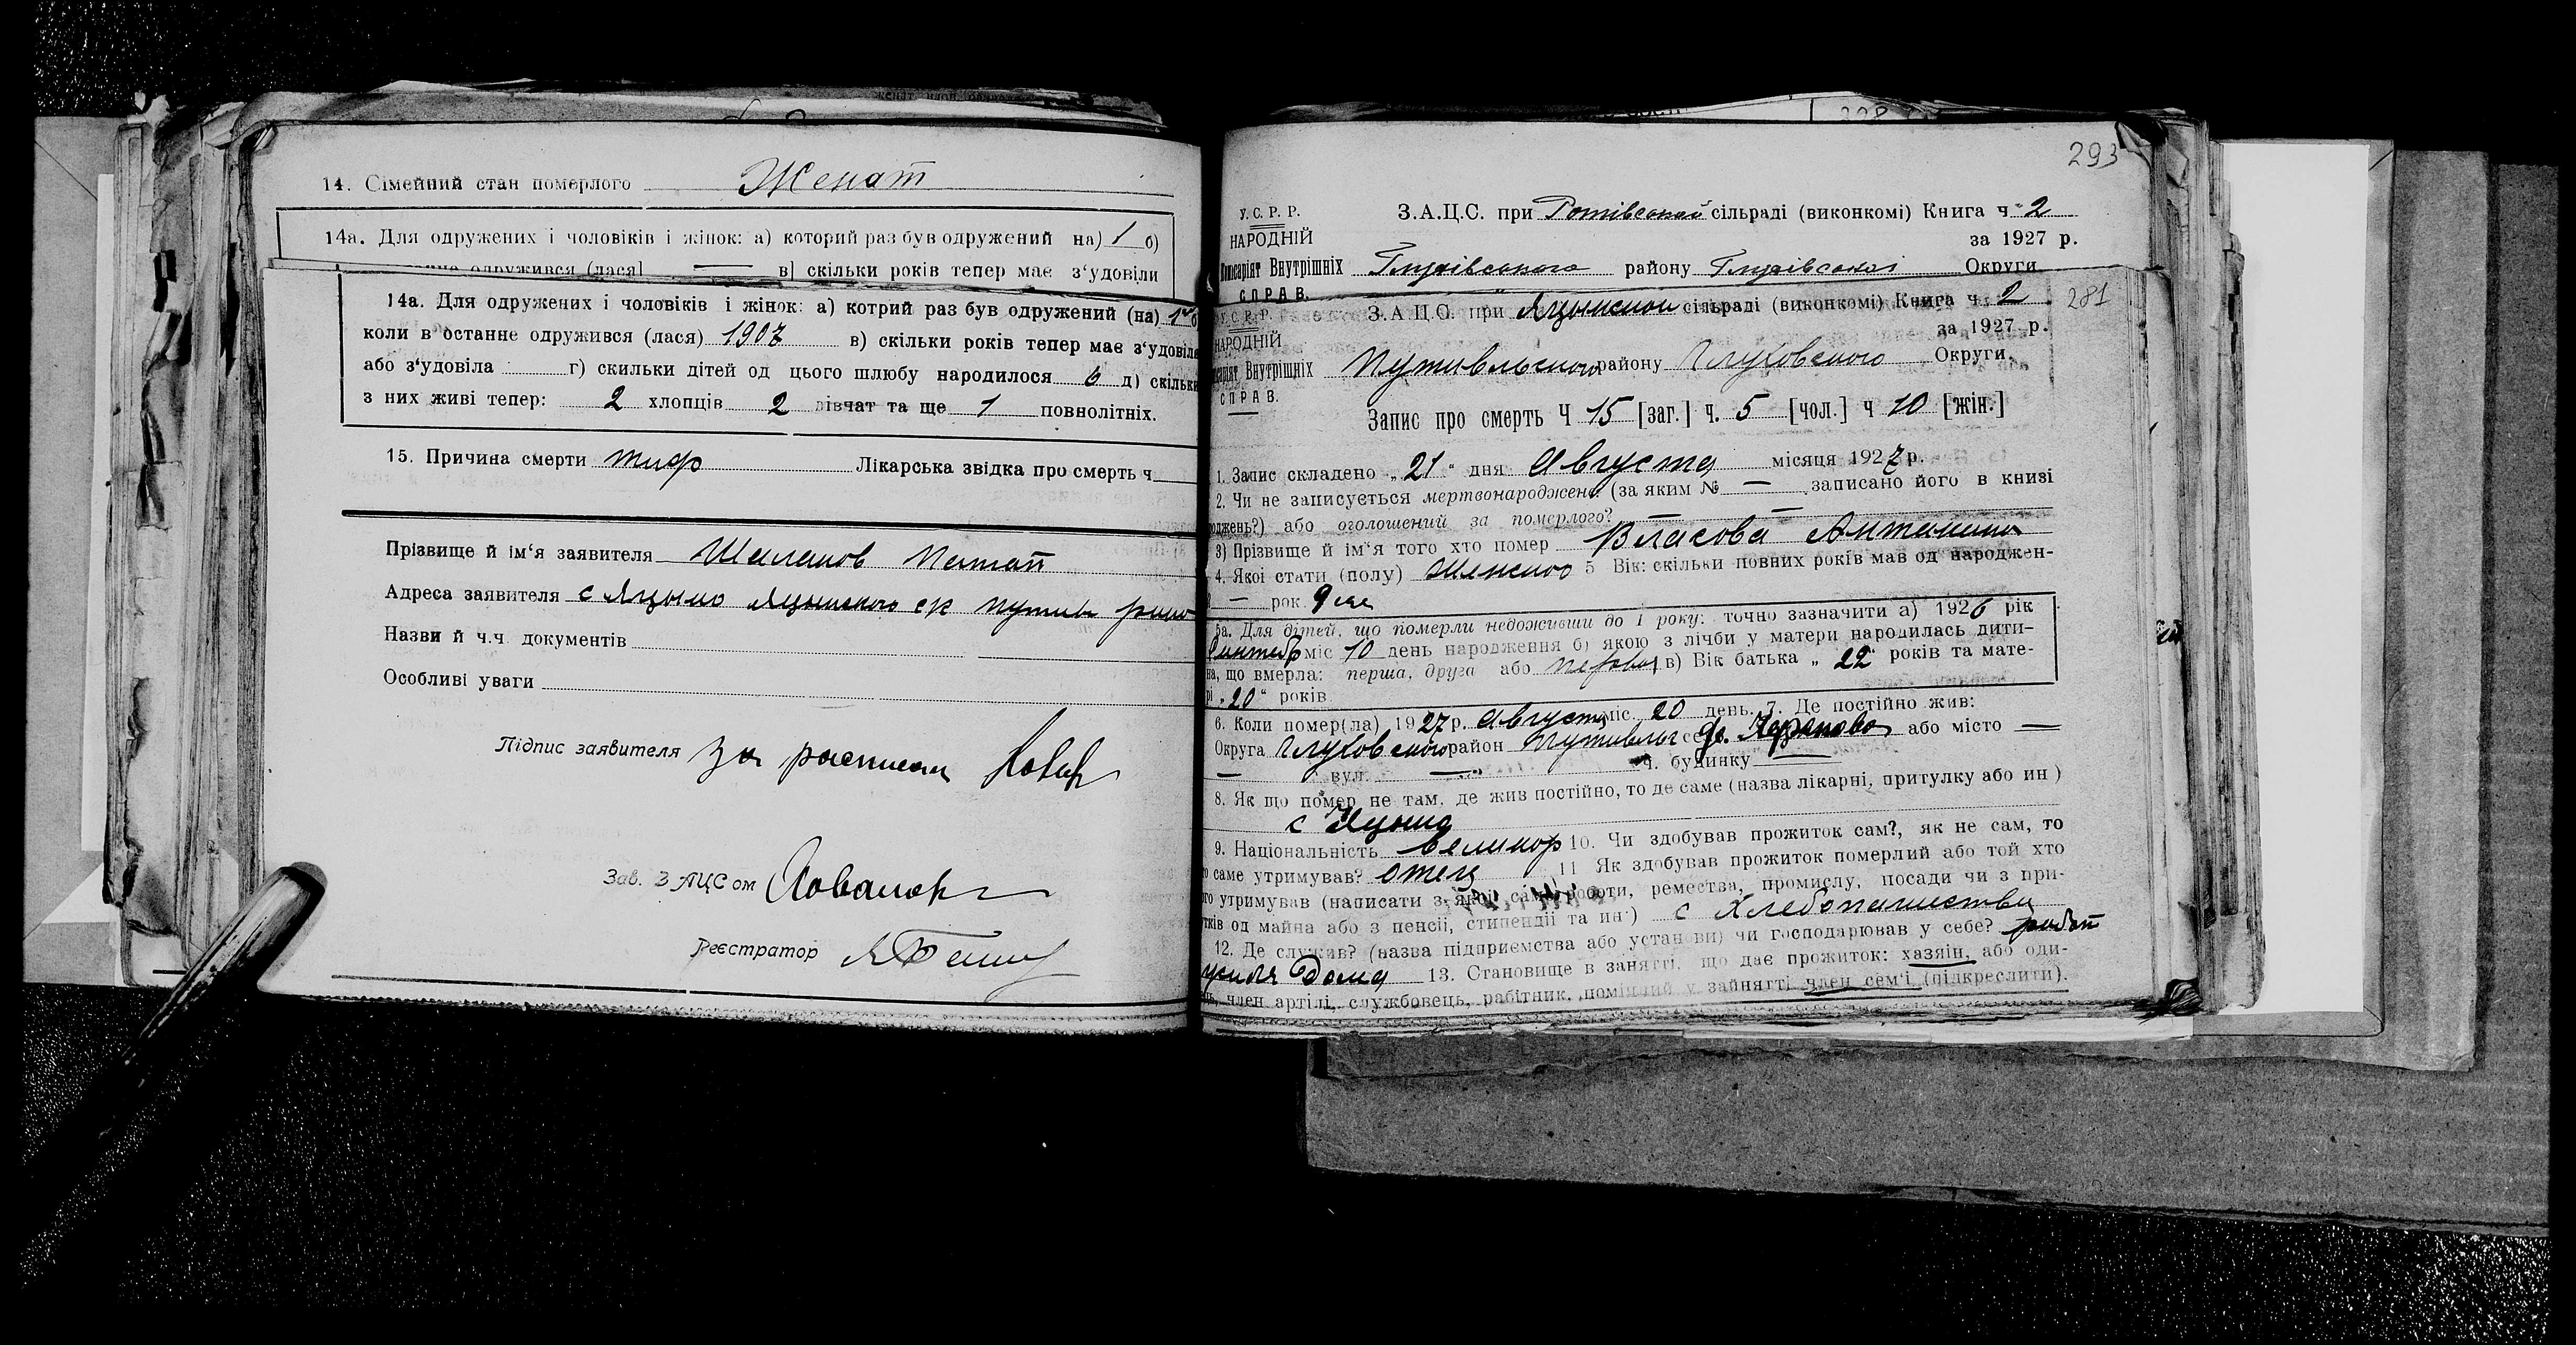 14. Сімейний стан померлого Женат
14а. Для одружених і чоловіків і жінок: а) которий раз був одружений на) 1 б)
одружився (лася) — в) скільки років тепер має з'удовіли
14а. Для одружених і чоловіків і жінок: а) котрий раз був одружений (на) 1
коли в останне одружився (лася) 1907 в) скільки років тепер має з'удовіла
або з'удовіла г) скильки дітей од цього шлюбу народилося 6 д) скільки
з них живі тепер: 2 хлопців 2 дівчат та ще 1 повнолітніх.
15. Причина смерти тиф Лікарська звідка про смерть ч
Прізвище й ім'я заявителя Шалапов Потап
Адреса заявителя с Яцыно Яцынского с/с путивл
Назви й ч.ч. документів
Особливі уваги
Підпис заявителя За
Зав. ЗАЦСом
Реєстратор
293
У. С. Р. Р.
З.А.Ц.С. при сільраді (виконкомі) Книга ч 2
НАРОДНІЙ
за 1927 р.
Комісаріят Внутрішніх Глухівського району Глухівської Округи
СПРАВ.
У. С. Р. Р. З.А.Ц.С. при Яцынской сільраді (виконкомі) Книга ч. 2 281
за 1927 р.
НАРОДНІЙ
Внутрішніх Путивльского району Глуховского Округи.
СПРАВ.
Запис про смерть Ч 15 [заг.] ч. 5 [чол.] ч 10 [жін.]
1. Запис складено „21“ дня Августа місяця 1927 р.
2. Чи не записується мертвонароджені (за яким № — записано його в книзі
роджень?) або оголошений за померлого? —
3) Прізвище й ім'я того хто помер Власова Антонина
4. Якої стати (полу) Женского 5 Вік: скільки повних років мав од народжен-
— рок 9 ме
5а. Для дітей, що померли недоживши до 1 року: точно зазначити а) 1926 рік
міс 10 день народження б) якою з лічби у матери народилась дити-
на, що вмерла: перша, друга або первая в) Вік батька „22“ років та мате-
рі „20“ років
6. Коли помер(ла) 1927 р. Августа міс. 20 день. 7. Де постійно жив:
Округа Глуховского район Путивльс або місто —
— вул. — ч. будинку —
8. Як що помер не там, де жив постійно, то де саме (назва лікарні, притулку або ин)
с Яцына
9. Національність великор 10. Чи здобував прожиток сам?, як не сам, то
хто саме утримував? отец 11 Як здобував прожиток померлий або той хто
його утримував (написати з якої саме роботи, ремества, промислу, посади чи з при-
бутків од майна або з пенсії, стипендії та ин.) с хлебопашества
12. Де служив? (назва підприємства або установи) чи господарював у себе?
дома 13. Становище в занятті, що дає прожиток: хазяін, або оди-
нак, член артілі, службовець, рабітник, помічний у зайнятті член сем'ї (підкреслити).